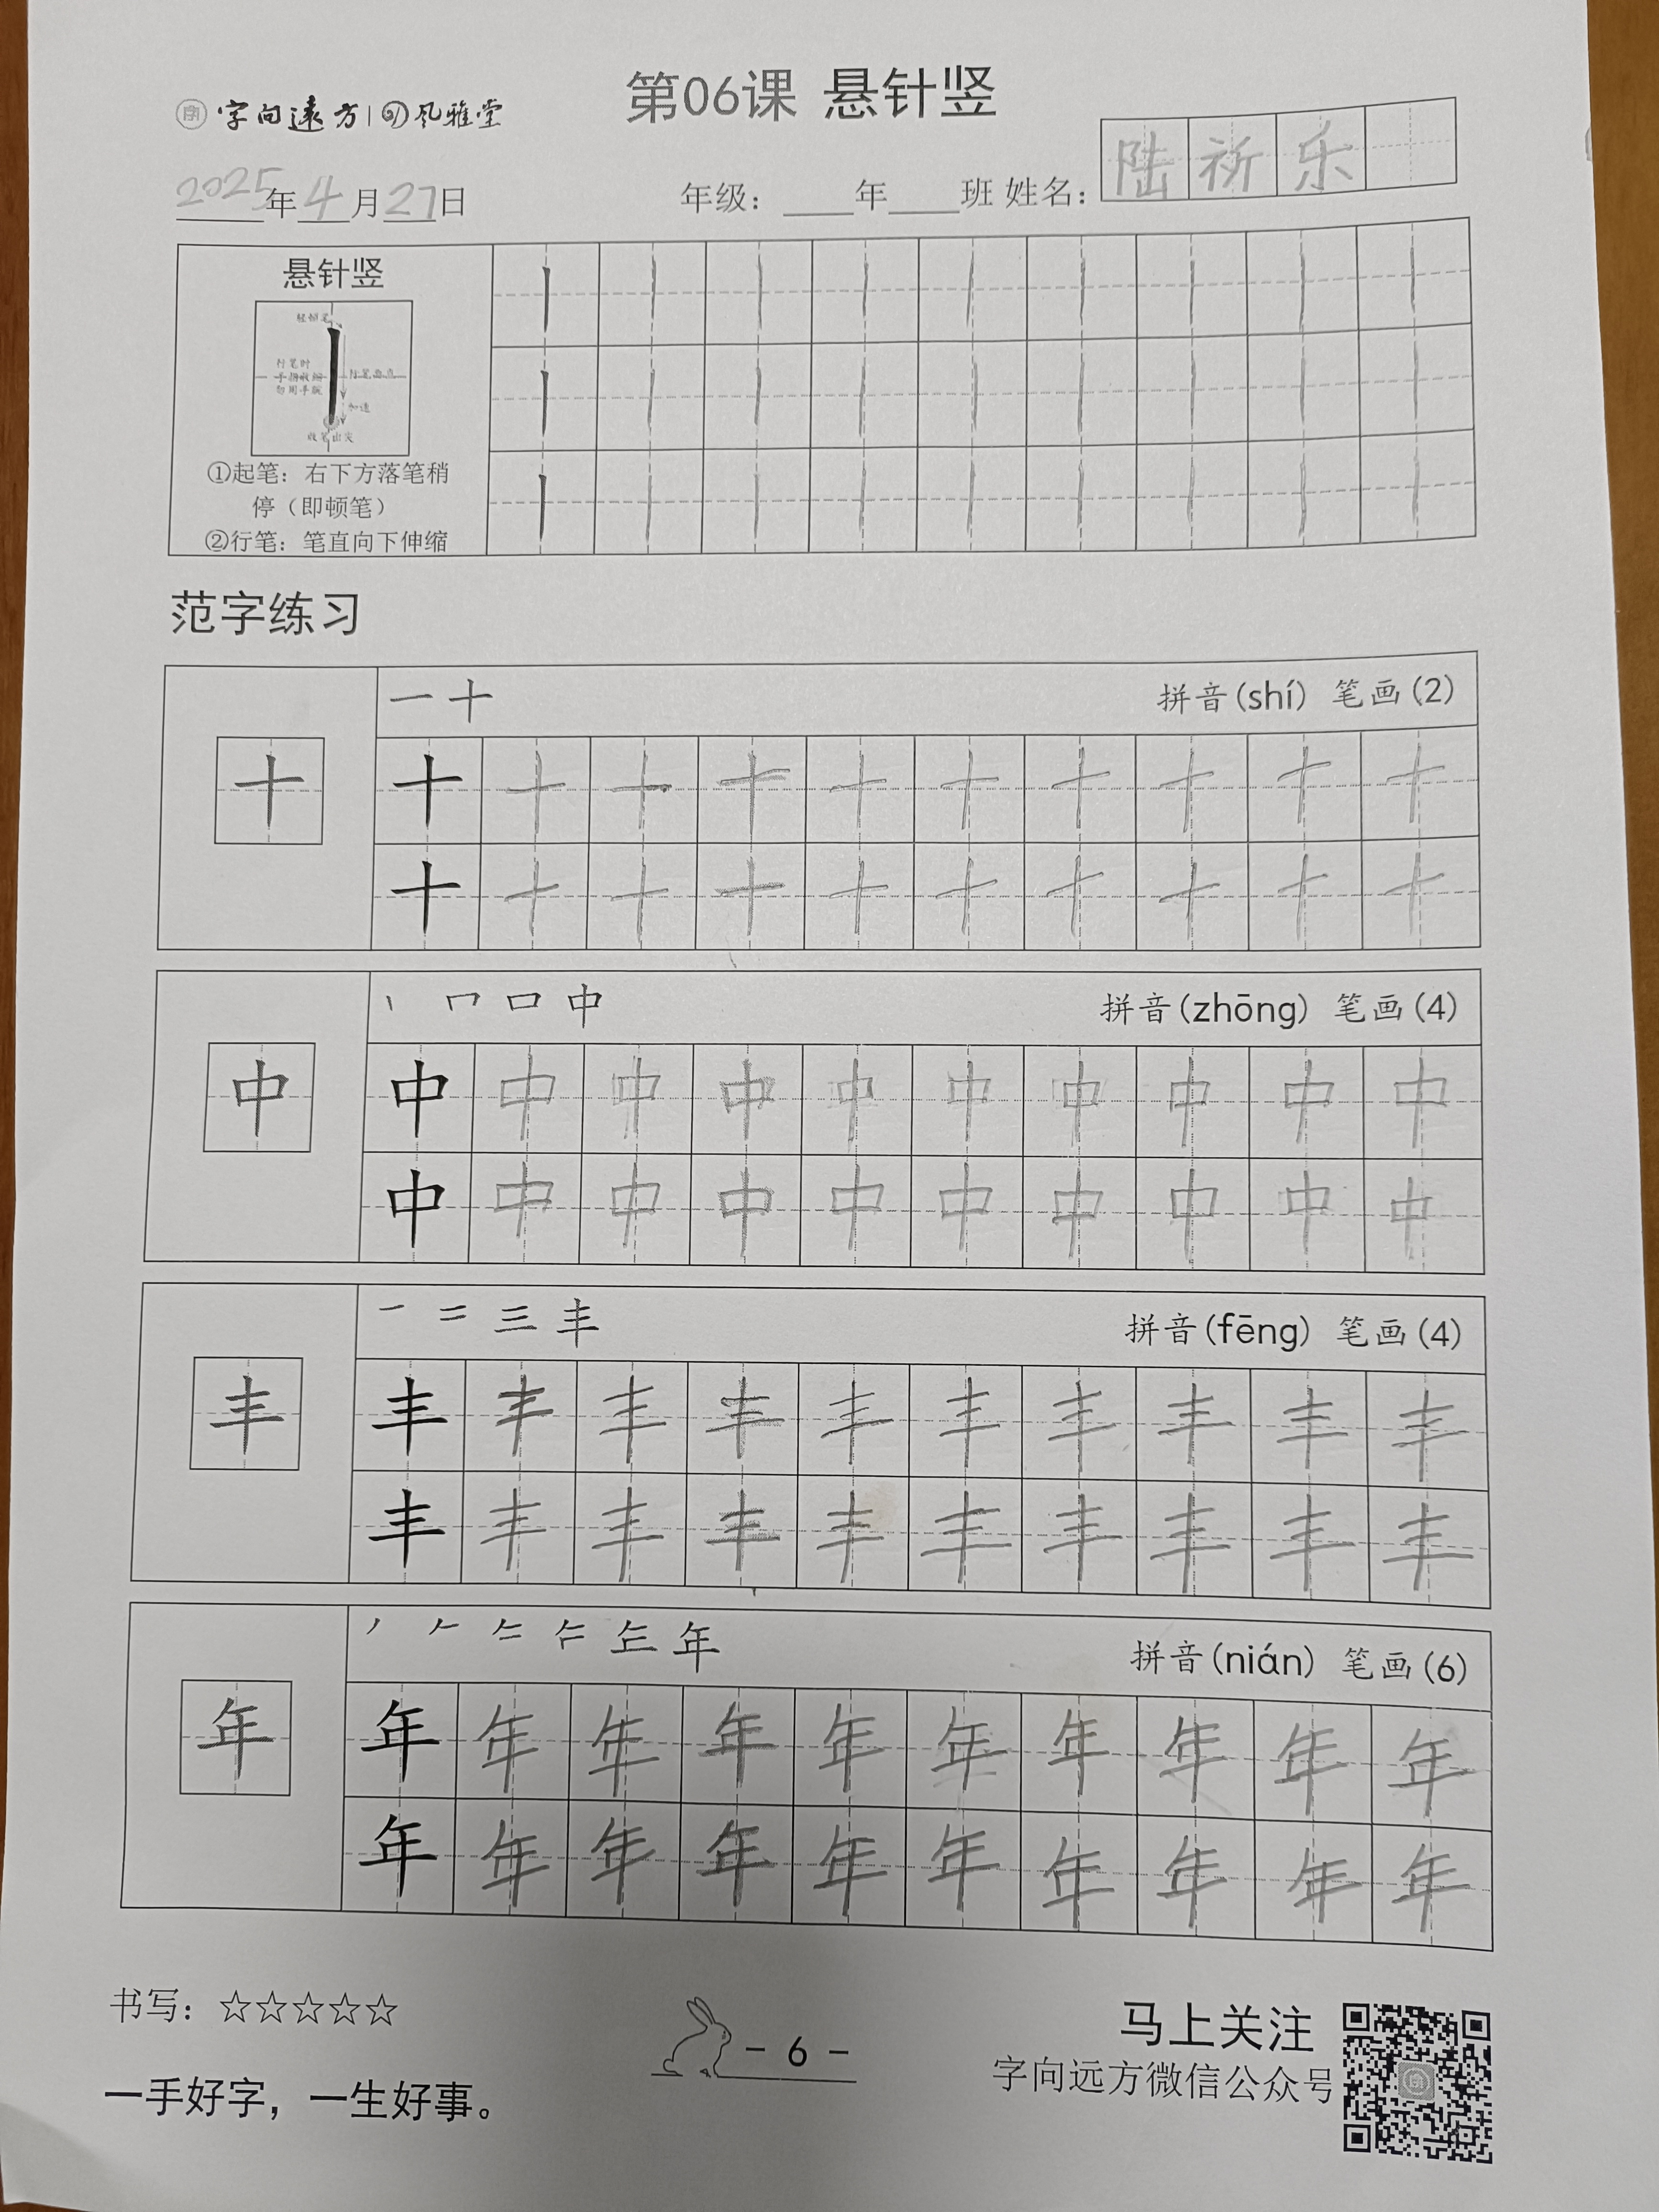 第06课 悬针竖
字向远方 风雅堂
陆祈乐
2025年4月27日 年级：____年____班 姓名：
悬针竖
轻顿笔
行笔时
手指收缩
勿用手腕
行笔垂直
加速
收笔出尖
①起笔：右下方落笔稍
停（即顿笔）
②行笔：笔直向下伸缩
范字练习
一 十 拼音(shí) 笔画(2)
十 十 十 十 十 十 十 十 十 十 十
十 十 十 十 十 十 十 十 十 十
丨 冖 口 中 拼音(zhōng) 笔画(4)
中 中 中 中 中 中 中 中 中 中 中
中 中 中 中 中 中 中 中 中 中
一 二 三 丰 拼音(fēng) 笔画(4)
丰 丰 丰 丰 丰 丰 丰 丰 丰 丰 丰
丰 丰 丰 丰 丰 丰 丰 丰 丰 丰
年 拼音(nián) 笔画(6)
年 年 年 年 年 年 年 年 年 年 年
年 年 年 年 年 年 年 年 年 年
书写：☆☆☆☆☆
一手好字，一生好事。
- 6 -
马上关注
字向远方微信公众号